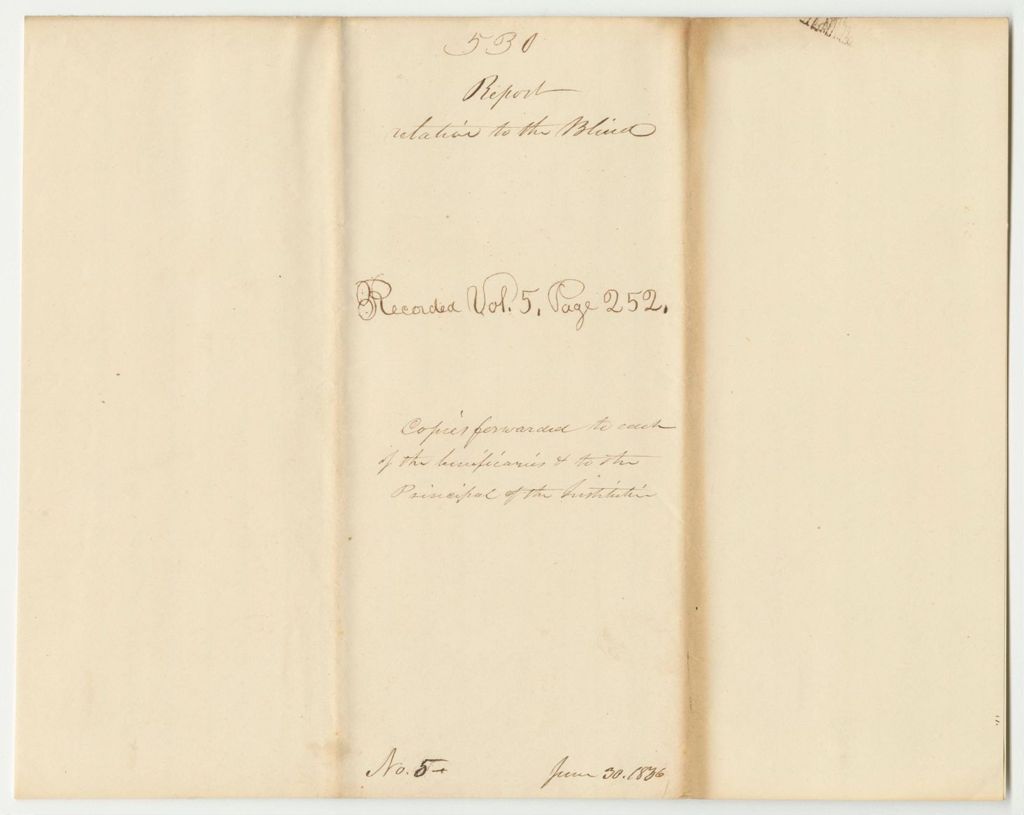 530
Report
relation to the Blind
Recorded Vol. 5, Page 252.
Copies forwarded to each
of the beneficaries & to the
Principal of the Institution
No. 5
June 30. 1836